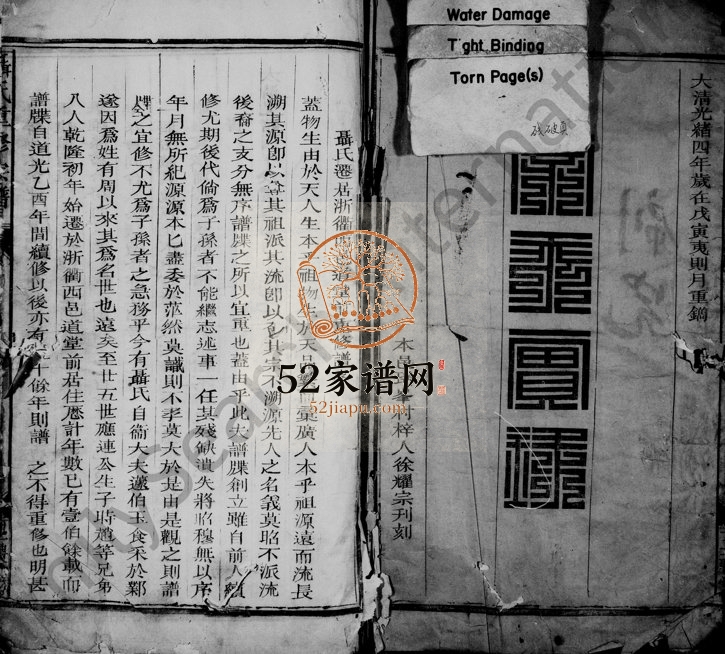 Water Damage
Tight Binding
Torn Page(s)
大清光緒四年歲在戊寅夷則月重鐫
梓人徐耀宗刊刻
聶氏遷居浙衢西
蓋物生由於天人生本乎祖物生於天品彙廣人本乎祖源遠而流長
溯其源卽以其祖派其流卽以其宗不溯源先人之名義莫昭不派流
後裔之支分無序譜牒之所以宜重也蓋由乎此夫譜牒創立雖自前人續
修尤期後代倘爲子孫者不能繼志述事一任其残缺遺失將昭穆無以序
年月無所紀源源本匕盡委於茫然莫識則不孝莫大於是由是觀之則譜
牒之宜修不尤爲子孫者之急務乎今有聶氏自衛大夫蘧伯玉食采於鄴
遂因爲姓有周以來其爲名世也遠矣至廿五世應連公生子時趙等兄弟
八人乾隆初年始遷於浙衢西邑道堂前居住歷計年數已有壹伯餘載而
譜牒自道光乙酉年間續修以後亦有十餘年則譜之不得重修也明甚
52家谱网
52jiapu.com